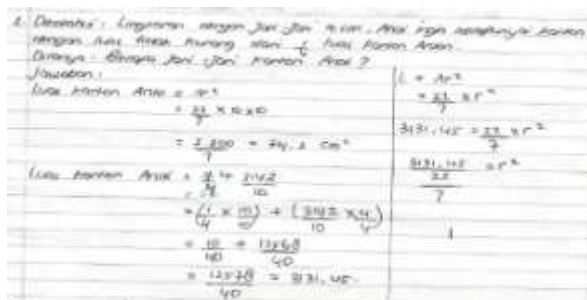 2. Diketahui : Lingkaran dengan jari-jari 10 cm. Arsi ingin mempunyai karton
dengan luas tidak kurang dari 1/4 luas karton
Ditanya : Berapa jari-jari karton Arsi ?
Jawaban :
Luas karton = πr²
= 22/7 × 10 × 10
= 2.200/7 = cm²
Luas karton Arsi = 1/4 + 3142/10
= (1/4 × 10/10) + (3142/10 × 4/4)
= 10/40 + 12568/40
= 12578/40 = 3131,45.
L = πr²
= 22/7 × r²
3131,45 = 22/7 × r²
3131,45 / 22/7 = r²